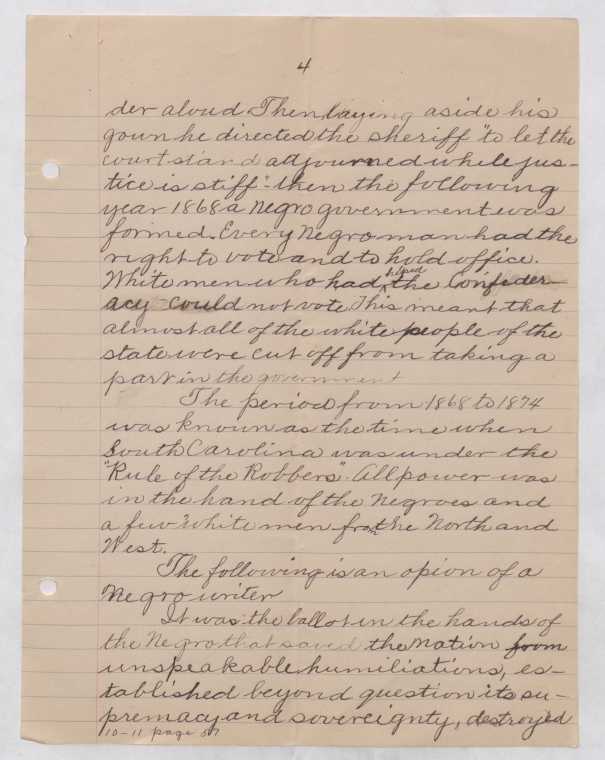 4
der aloud. Then laying aside his
gown he directed the sheriff "to let the
court stand adjourned while jus-
tice is stiff". then the following
year 1868 a Negro government was
formed. Every Negro man had the
right to vote and to hold office.
White men who had helped the Confeder-
acy could not vote. This meant that
almost all of the white people of the
state were cut off from taking a
part in the government
The period from 1868 to 1874
was known as the time when
South Carolina was under the
"Rule of the Robbers". All power was
in the hand of the Negroes and
a few white men from the North and
West.
The following is an opion of a
Negro writer
It was the ballot in the hands of
the Negro that saved the Nation from
unspeakable humiliations, es-
tablished beyond question its su-
premacy and sovereignty, destroyed
10-11 page 57